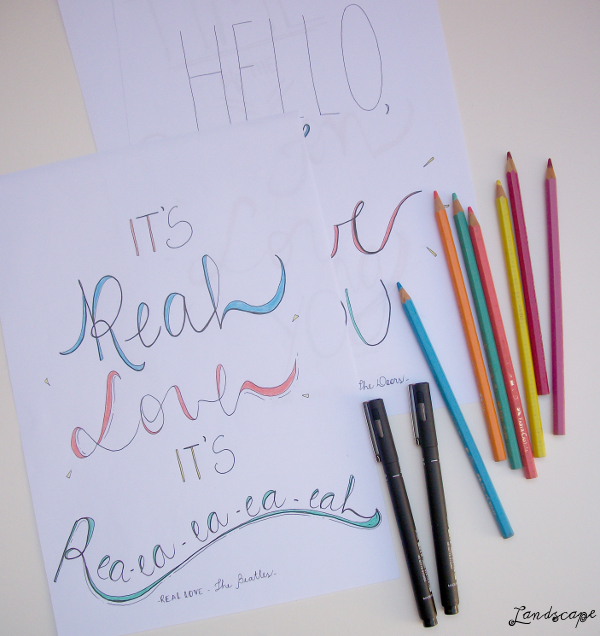 HELLO,
The Doors.
IT'S
Real
Love
IT'S
Rea-ea-ea-ea-eal
REAL LOVE - The Beatles.
Landscape